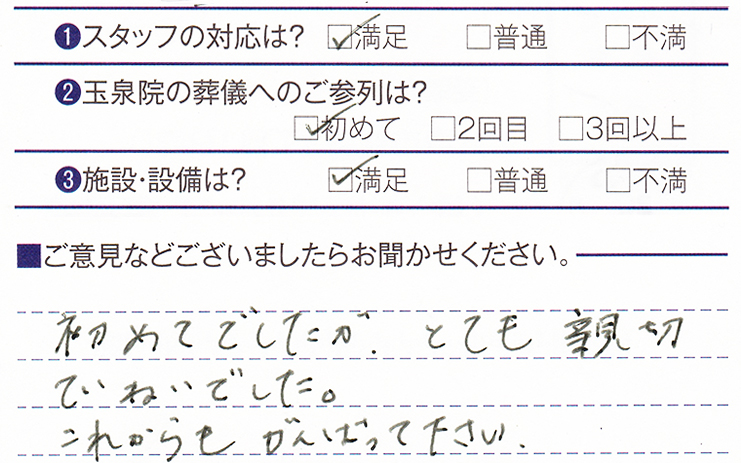 ❶スタッフの対応は? ☑満足 □普通 □不満
❷玉泉院の葬儀へのご参列は?
☑初めて □2回目 □3回以上
❸施設・設備は? ☑満足 □普通 □不満
■ご意見などございましたらお聞かせください。
初めてでしたが、とても親切
ていねいでした。
これからもがんばって下さい.